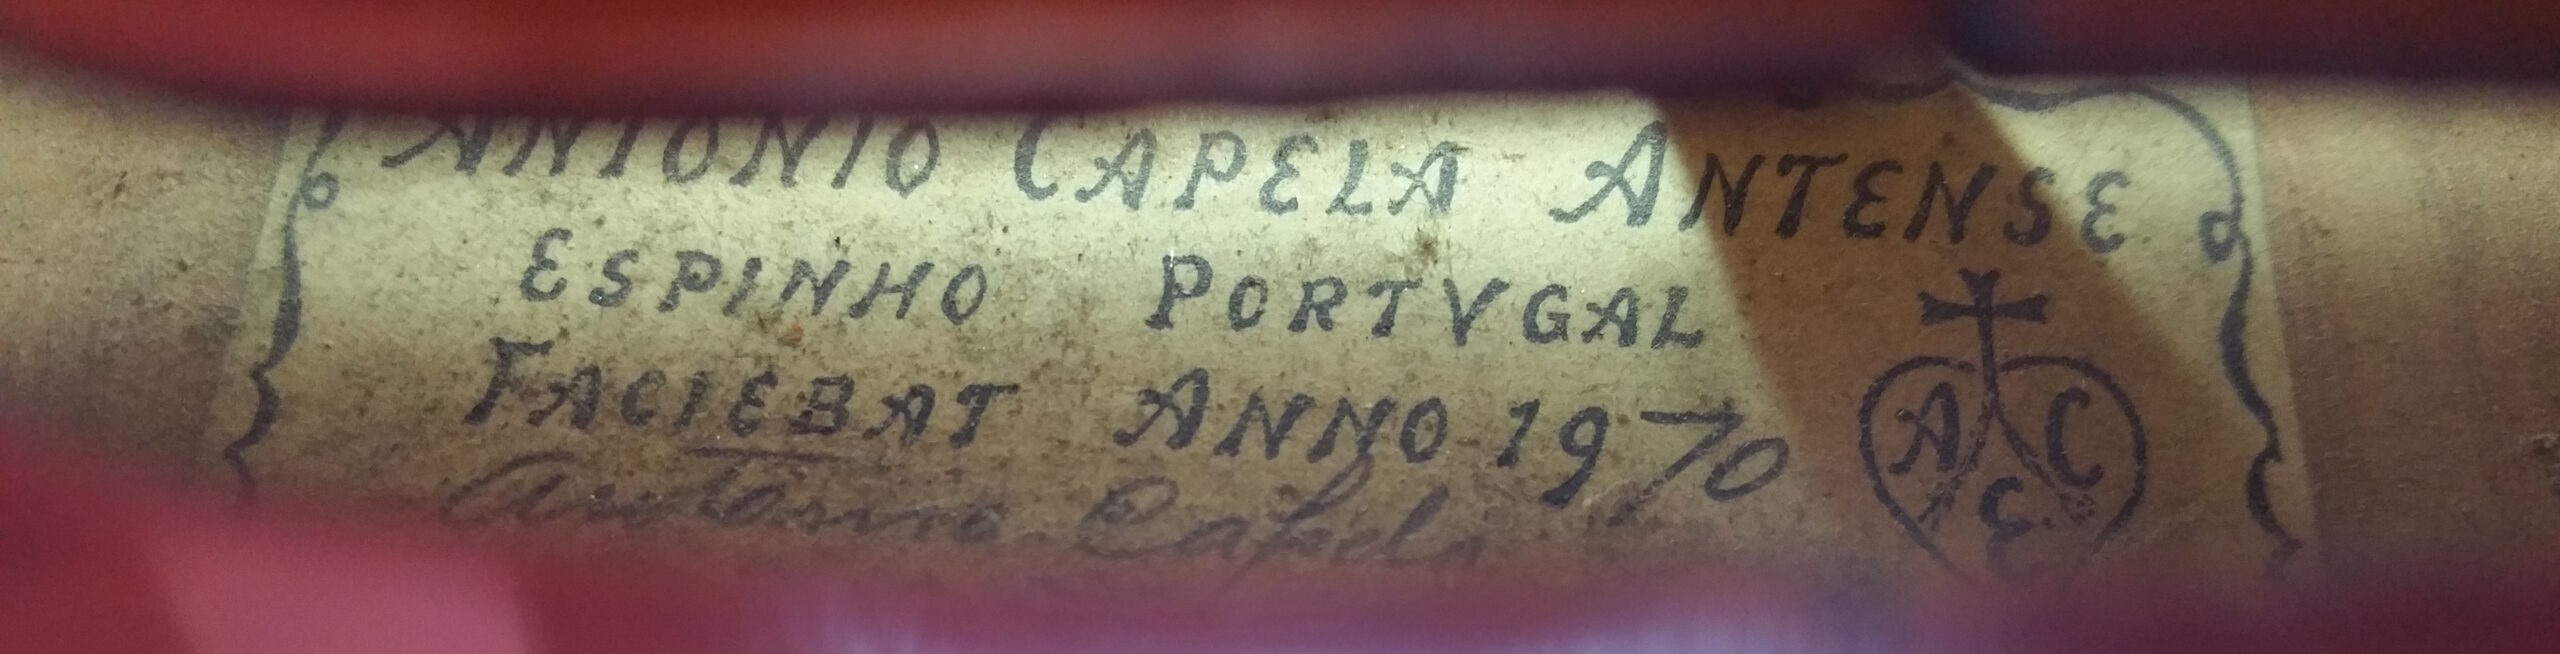 ANTONIO CAPELA ANTENSE
ESPINHO PORTVGAL
FACIEBAT ANNO 1970
Antonio Capela
A C
E